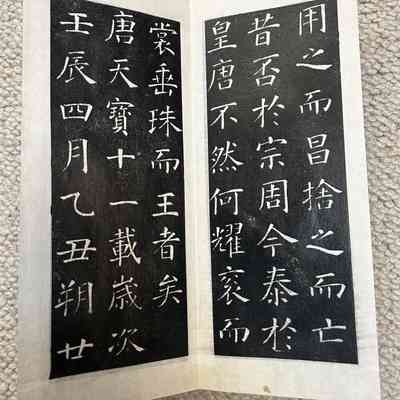 用之而昌捨之而亡
昔否於宗周今泰於
皇唐不然何耀袞而
裳垂珠而王者矣
唐天寶十一載歲次
壬辰四月乙丑朔廿